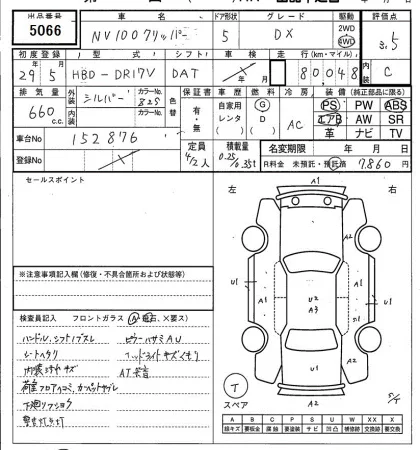 出品番号 車名 ドア形状 グレード 駆動 評価点
5066 NV100クリッパー 5 DX 2WD 4WD 3.5
初度登録 型式 シフト 車検 走行(km・マイル) 内装
29年5月 HBD-DR17V DAT 年 月 80048 C
排気量 外装 シルバー カラーNo. 色替 保証書 車歴 燃料 冷房 装備(純正部品に限る)
660 c.c. 内装 カラーNo. 有・無 自家用 レンタ G D AC PS PW ABS
エアB AW SR
革 ナビ TV
車台No 152876
定員 4/2人 積載量 0.25/0.35t 名変期限 年 月 日
登録No R料金 未預託・預託済 7,860円
セールスポイント
左 右
※注意事項記入欄(修復・不具合箇所および状態等)
検査員記入 フロントガラス (A・飛石、X要ス)
ハンドル、シフトノブスレ
シートヘタリ
内装ヨゴレキズ
荷室フロアヘコミ、カーペットヤブレ
下廻リフショク
A1
A2
U1 A1 U2 A3 A1 U1
U1
A2
T
スペア
A B C P S U W X XX
線キズ 要板金 腐蝕 要塗装 サビ 凹凸 補修跡 要交換 交換済